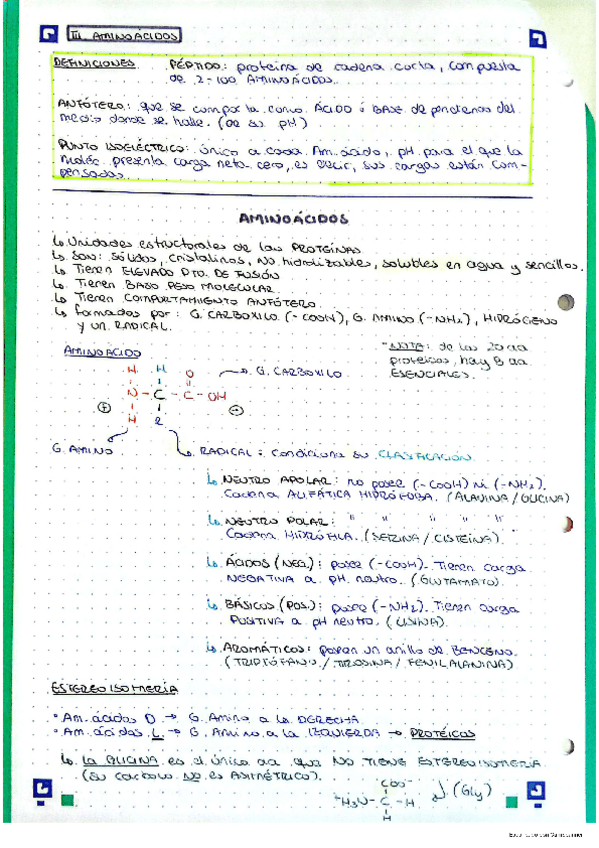 III. AMINOÁCIDOS
DEFINICIONES PÉPTIDO: proteína de cadena corta, compuesta
de 2-100 AMINOÁCIDOS.
ANFÓTERO: que se comporta como ÁCIDO ó BASE dependiendo del
medio donde se halle. (de su pH)
PUNTO ISOELÉCTRICO: único a cada Am.ácido, pH para el que la
moléc. presenta carga neta cero, es decir, sus cargas están com-
pensadas.
AMINOÁCIDOS
↳ Unidades estructurales de las PROTEÍNAS
↳ Son: sólidos, cristalinos, NO hidrolizables, solubles en agua y sencillos.
↳ Tienen ELEVADO PTO. DE FUSIÓN
↳ Tienen BAJO PESO MOLECULAR.
↳ Tienen COMPORTAMIENTO ANFÓTERO.
↳ Formados por: G. CARBOXILO (-COOH), G. AMINO (-NH2), HIDRÓGENO
y un RADICAL.
*NOTA: de los 20 aa
proteicos, hay 8 aa
ESENCIALES.
AMINOÁCIDO
H H O → G. CARBOXILO
N - C - C - OH
+ -
H R
G. AMINO
↳ RADICAL: condiciona su CLASIFICACIÓN
↳ NEUTRO APOLAR: no posee (-COOH) ni (-NH2).
Cadena ALIFÁTICA HIDRÓFOBA. (ALANINA/GLICINA)
↳ NEUTRO POLAR: " " " " "
Cadena HIDRÓFILA. (SERINA/CISTEÍNA).
↳ ÁCIDOS (NEG.): posee (-COOH). Tienen carga
NEGATIVA a pH neutro. (GLUTAMATO).
↳ BÁSICOS (POS.): posee (-NH2). Tienen carga
POSITIVA a pH neutro. (LISINA).
↳ AROMÁTICOS: poseen un anillo de BENCENO.
(TRIPTÓFANO/TIROSINA/FENILALANINA)
ESTEREOISOMERÍA
• Am.ácidos D → G. Amino a la DERECHA
• Am.ácidos L → G. Amino a la IZQUIERDA → PROTÉICOS
↳ LA GLICINA es el único aa que NO TIENE ESTEREOISOMERÍA
(su carbono NO es ASIMÉTRICO).
COO-
+H3N - C - H (Gly)
H